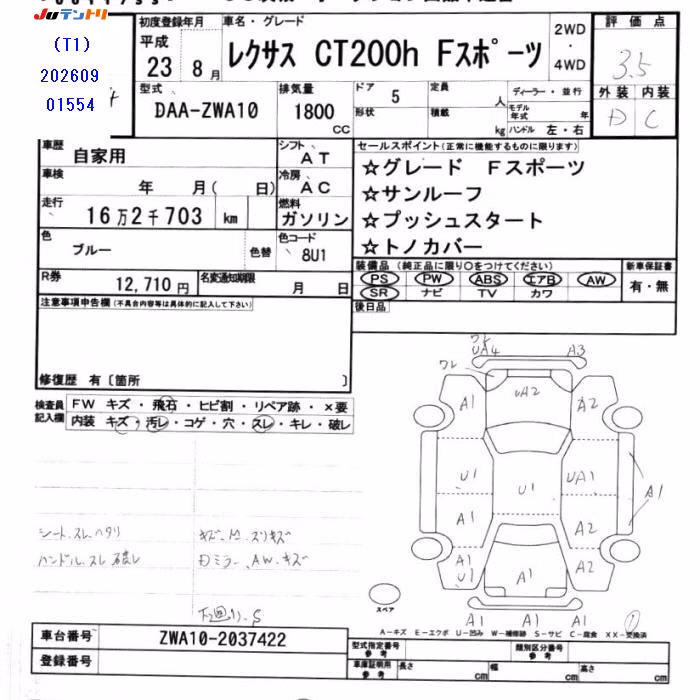 Juテントリ
(T1)
202609
01554
初度登録年月
平成
23 8月
車名・グレード
レクサス CT200h Fスポーツ
2WD
・
4WD
評価点
3.5
外装 内装
D C
型式
DAA-ZWA10
排気量
1800
CC
ドア
5
形状
定員
人
積載
kg
ディーラー・並行
モデル年式 年
ハンドル 左・右
車歴
自家用
シフト
AT
車検
年 月( 日)
冷房
AC
走行
16万2千703 km
燃料
ガソリン
色
ブルー
色替
色コード
8U1
R券
12,710円
名変通知期限
月 日
セールスポイント(正常に機能するものに限ります)
☆グレード Fスポーツ
☆サンルーフ
☆プッシュスタート
☆トノカバー
装備品(純正品に限り○をつけてください)
PS PW ABS エアB AW
SR ナビ TV カワ
新車保証書
有・無
後日品
注意事項申告欄(不具合内容等は具体的に記入して下さい)
修復歴 有〔箇所 〕
検査員記入欄
FW キズ・飛石・ヒビ割・リペア跡・×要
内装 キズ・汚レ・コゲ・穴・スレ・キレ・破レ
シート、スレ、ヘタリ
ハンドル、スレ
ミラー、AW、キズ
ワレ
UA4 A3
ワレ
A1 UA2 A2
U1 U1 UA1 A1
A1 A2
A1
U1 A1 A2
A1 A1 A1
スペア
A－キズ E－エクボ U－凹み W－補修跡 S－サビ C－腐食 XX－交換済
車台番号
ZWA10-2037422
登録番号
型式指定番号
参考
類別区分番号
参考
車庫証明用
参考
長さ cm
幅 cm
高さ cm